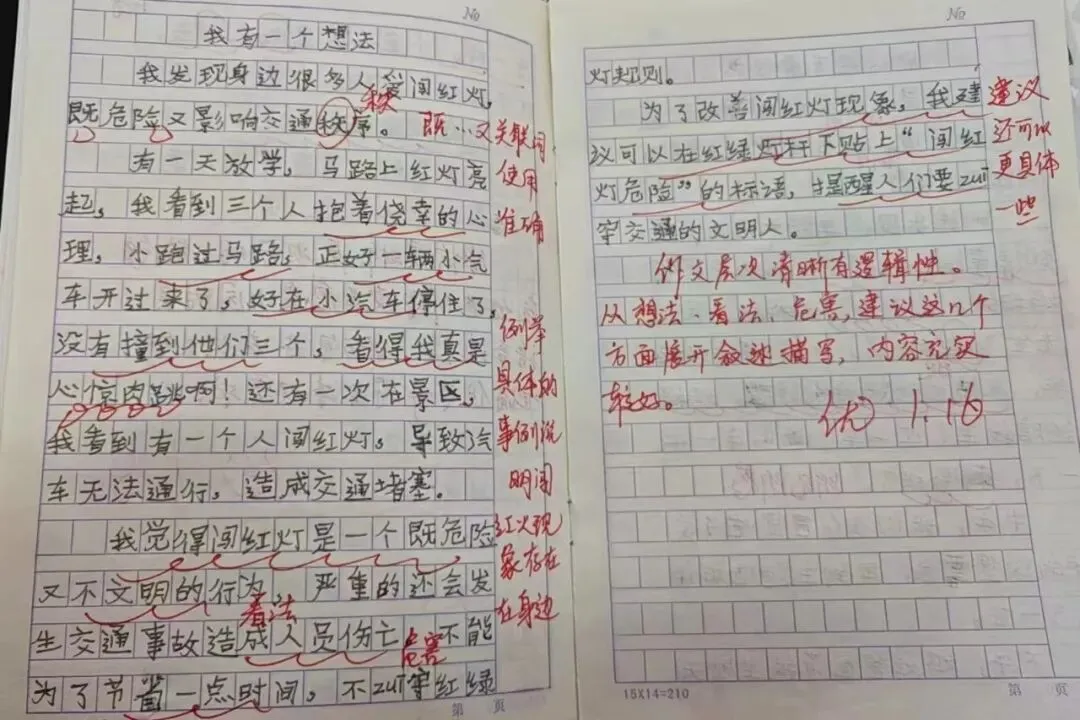 No
我有一个想法
我发现身边很多人爱闯红灯,
秩
既危险又影响交通秩序。 既…又 关联词
使用
准确
有一天放学,马路上红灯亮
起,我看到三个人抱着侥幸的心
理,小跑过马路,正好一辆小汽
车开过来了,好在小汽车停住了,
没有撞到他们三个,看得我真是
心惊肉跳啊!还有一次在景区,
我看到有一个人闯红灯,导致汽
车无法通行,造成交通堵塞。
例举
具体的
事例说
明闯
红灯现
象存在
在身边
我觉得闯红灯是一个既危险
又不文明的行为,严重的还会发
看法
生交通事故造成人员伤亡 不能
危害
为了节省一点时间,不zun守红绿
第 页
No
灯规则。
为了改善闯红灯现象,我建
议可以在红绿灯杆下贴上“闯红
灯危险”的标语,提醒人们要zun
守交通的文明人。
建议
还可以
更具体
一些
作文层次清晰有逻辑性。
从想法、看法、危害,建议这几个
方面展开叙述描写,内容充实
较好。
优 1.16
15X14=210
第 页